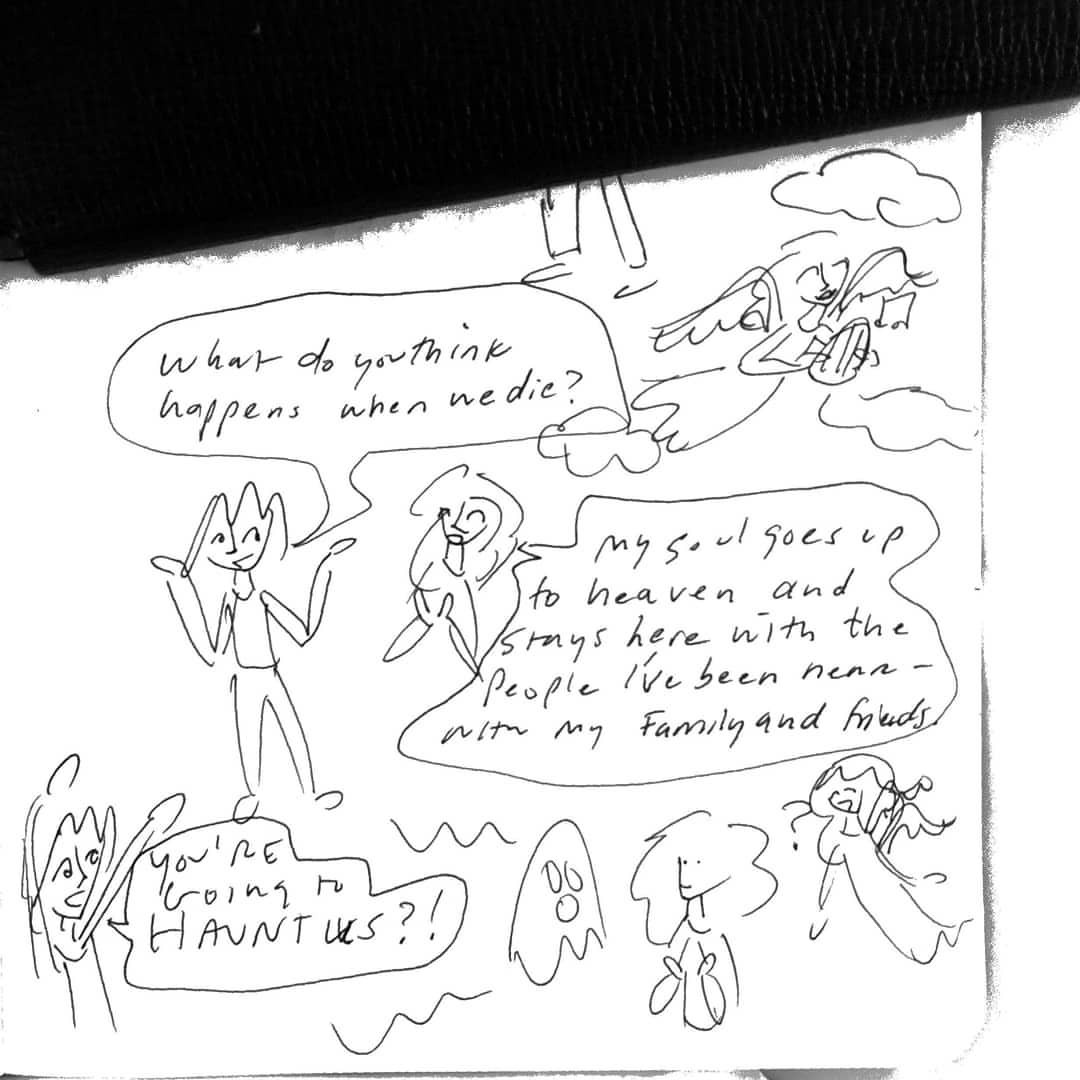 What do you think
happens when we die?
My soul goes up
to heaven and
stays here with the
people I've been near -
with my Family and friends.
YOU'RE
Going to
HAUNT US?!
?